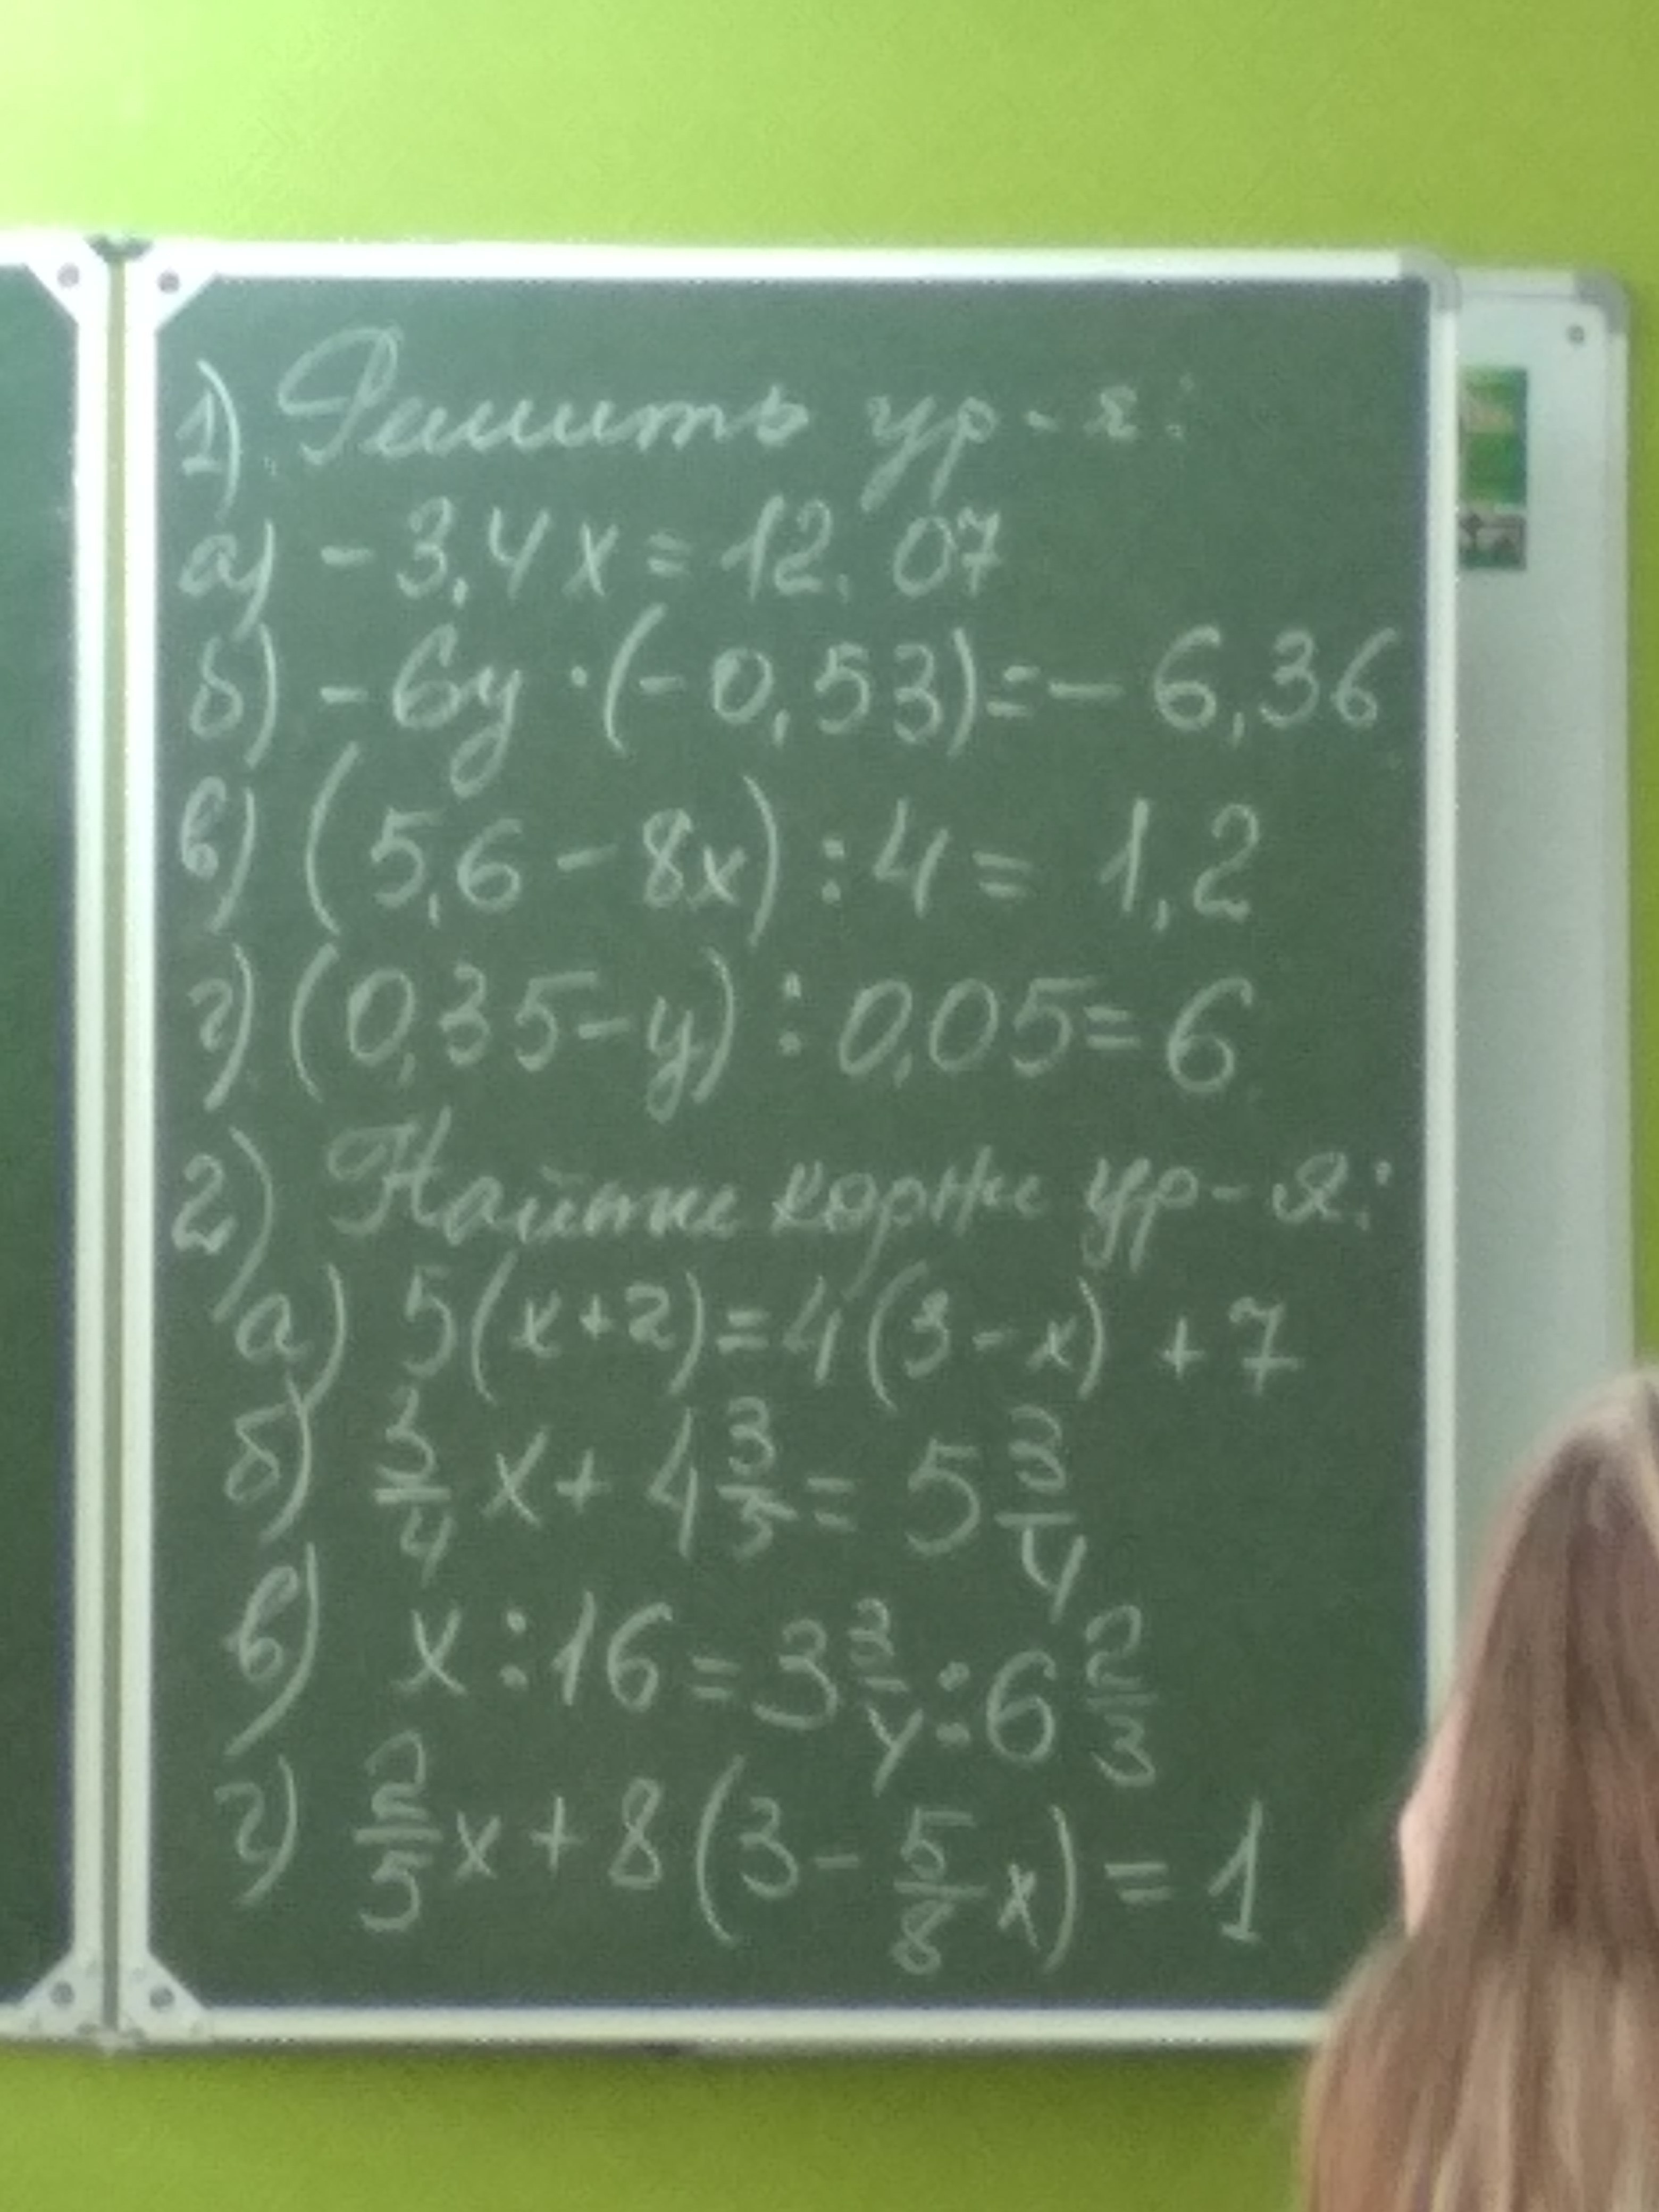 1). Решить ур-я:
а) - 3,4x = 12,07
б) - 6y · (-0,53) = - 6,36
в) (5,6 - 8x) : 4 = 1,2
г) (0,35 - y) : 0,05 = 6
2) Найти корни ур-я:
а) 5(x+2) = 4(3-x) + 7
б) 3/4 x + 4 3/5 = 5 3/4
в) x : 16 = 3 3/4 : 6 2/3
г) 2/5 x + 8(3 - 5/8 x) = 1